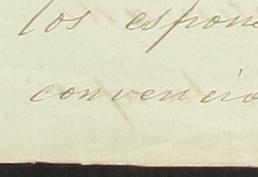 los espone
convencio